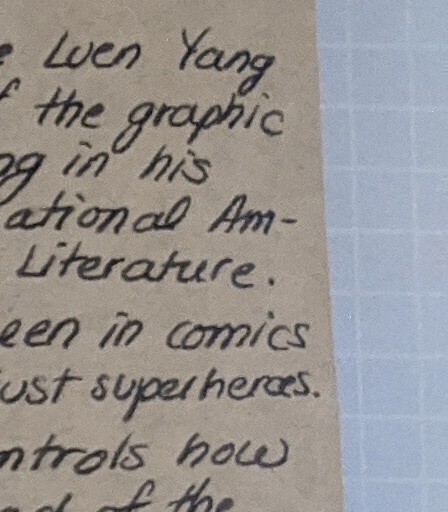 e Luen Yang
f the graphic
ng in his
ational Am-
Literature.
een in comics
ust superheroes.
ntrols how
of the